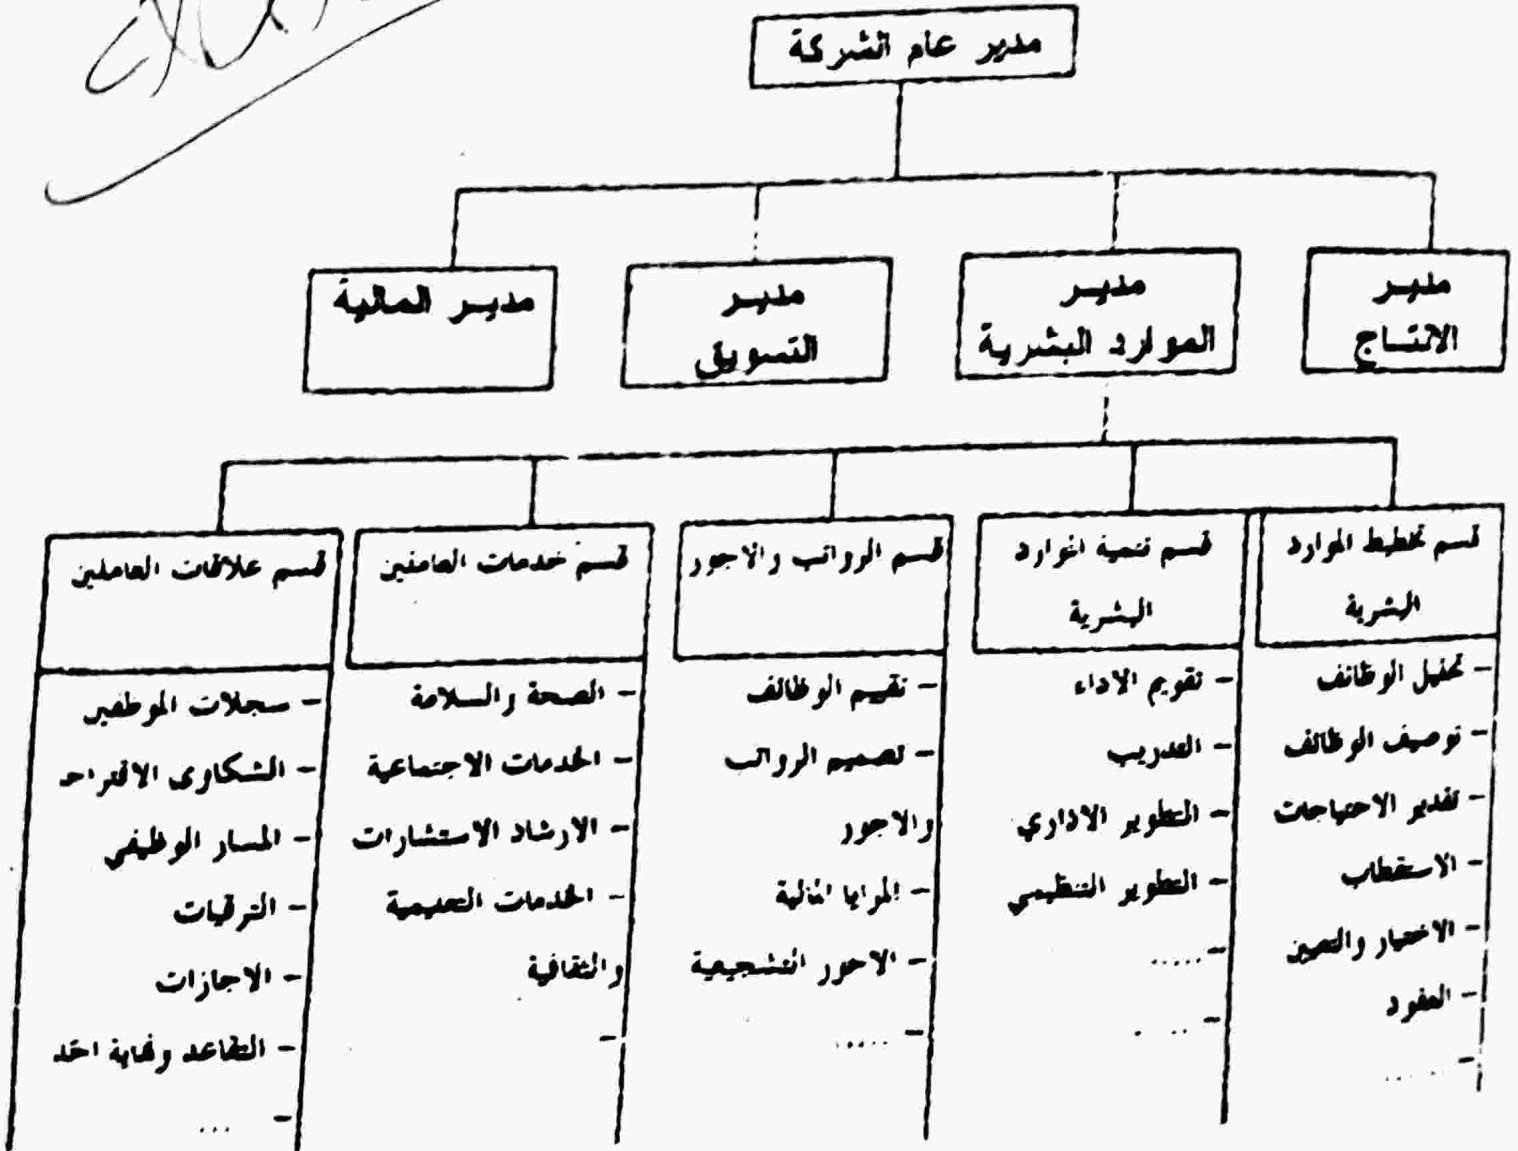 مدير عام الشركة
مدير
الانتاج
مدير
الموارد البشرية
مدير
التسويق
مدير المالية
قسم تخطيط الموارد
البشرية
- تحليل الوظائف
- توصيف الوظائف
- تقدير الاحتياجات
- الاستقطاب
- الاختيار والتعيين
- العقود
- ......
قسم تنمية الموارد
البشرية
- تقويم الاداء
- التدريب
- التطوير الاداري
- التطوير التنظيمي
- .....
- ....
قسم الرواتب والاجور
- تقييم الوظائف
- تصميم الرواتب
والاجور
- المزايا المالية
- الاجور التشجيعية
- .....
قسم خدمات العاملين
- الصحة والسلامة
- الخدمات الاجتماعية
- الارشاد الاستشارات
- الخدمات التعليمية
والثقافية
-
قسم علاقات العاملين
- سجلات الموظفين
- الشكاوى
- المسار الوظيفي
- الترقيات
- الاجازات
- التقاعد ونهاية
- ...